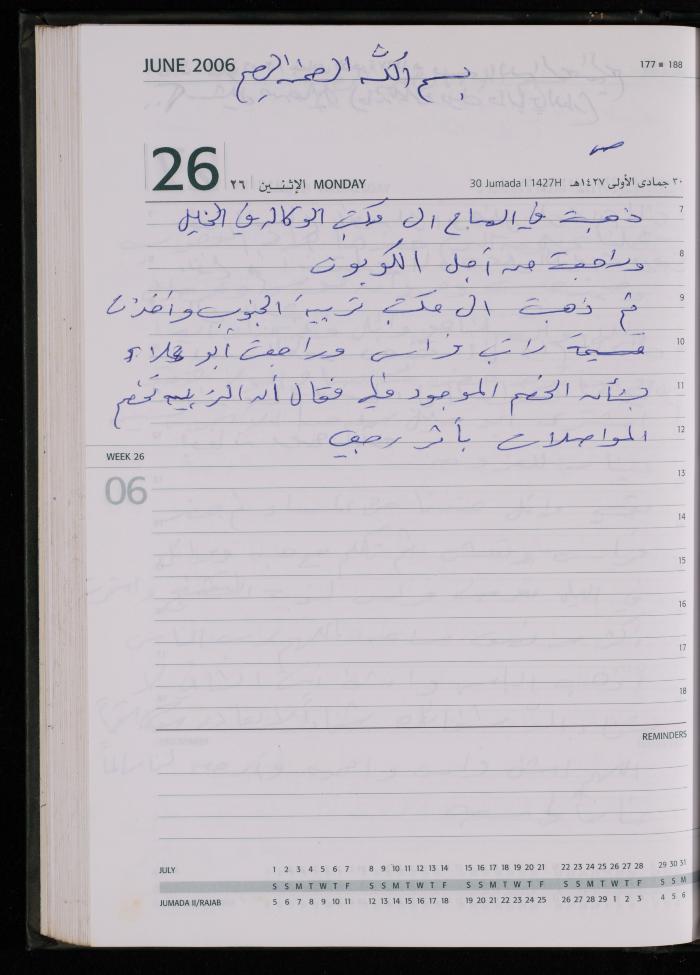 JUNE 2006
بسم الله الرحمن الرحيم
177 ■ 188
26 ٢٦ الإثنـيـن MONDAY
30 Jumada I 1427H ٣٠ جمادى الأولى ١٤٢٧هـ
7 ذهبت في الصباح الى مكتب الوكالة في الخليل
8 وراجعت من أجل الكوبون
9 ثم ذهبت الى مكتب تربية الجنوب وأخذت
10 قسيمة راتب فراس وراجعت أبو علاء
11 بشأن الخصم الموجود فيه فقال أن التربية تخصم
12 المواصلات بأثر رجعي
WEEK 26
06
13
14
15
16
17
18
REMINDERS
JULY 1 2 3 4 5 6 7 8 9 10 11 12 13 14 15 16 17 18 19 20 21 22 23 24 25 26 27 28 29 30 31
S S M T W T F S S M T W T F S S M T W T F S S M T W T F S S M
JUMADA II/RAJAB 5 6 7 8 9 10 11 12 13 14 15 16 17 18 19 20 21 22 23 24 25 26 27 28 29 1 2 3 4 5 6